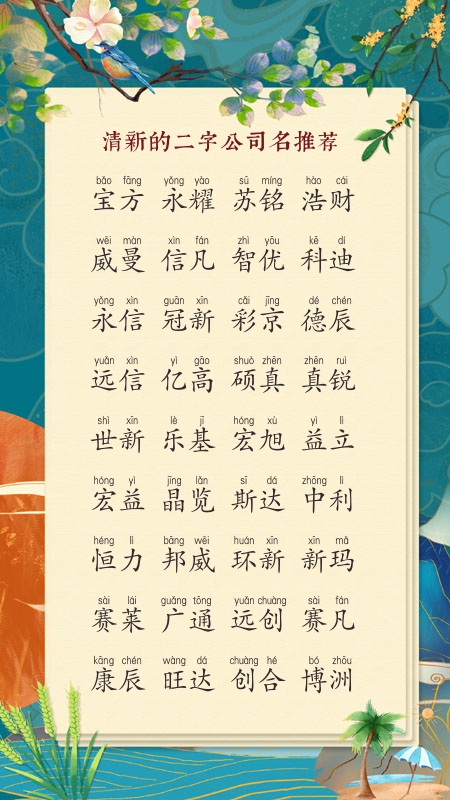 清新的二字公司名推荐
bǎo fāng yǒng yào sū míng hào cái
宝方 永耀 苏铭 浩财
wēi màn xìn fán zhì yōu kē dí
威曼 信凡 智优 科迪
yǒng xìn guān xīn cǎi jīng dé chén
永信 冠新 彩京 德辰
yuǎn xìn yì gāo shuò zhēn zhēn ruì
远信 亿高 硕真 真锐
shì xīn lè jī hóng xù yì lì
世新 乐基 宏旭 益立
hóng yì jīng lǎn sī dá zhōng lì
宏益 晶览 斯达 中利
héng lì bāng wēi huán xīn xīn mǎ
恒力 邦威 环新 新玛
sài lái guǎng tōng yuǎn chuàng sài fán
赛莱 广通 远创 赛凡
kāng chén wàng dá chuàng hé bó zhōu
康辰 旺达 创合 博洲